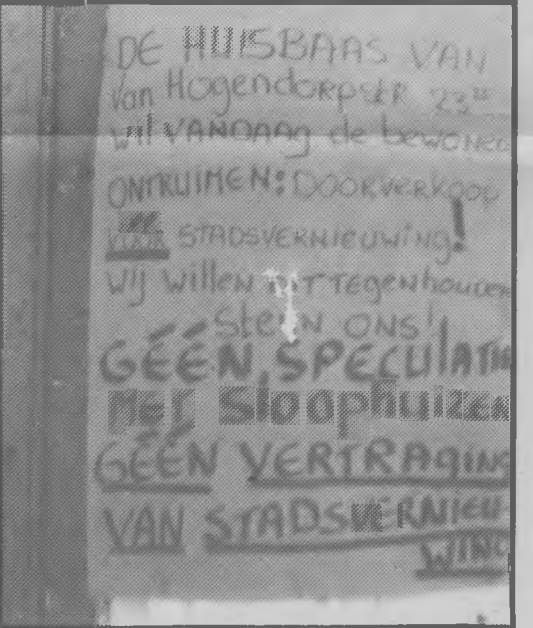 DE HUISBAAS VAN
Van HogendorpstR 23
wil VANDAAg de bewoneR
ONTRUIMEN: DOORVERKOOP
VOOR STADSVERNIEUWING!
WIJ willen DIT TEgenhouden
Steun ONS!
GÉÉN SPECULATIE
MET Sloophuizen
GÉÉN VERTRAgING
VAN STADSVERNIEU
WING